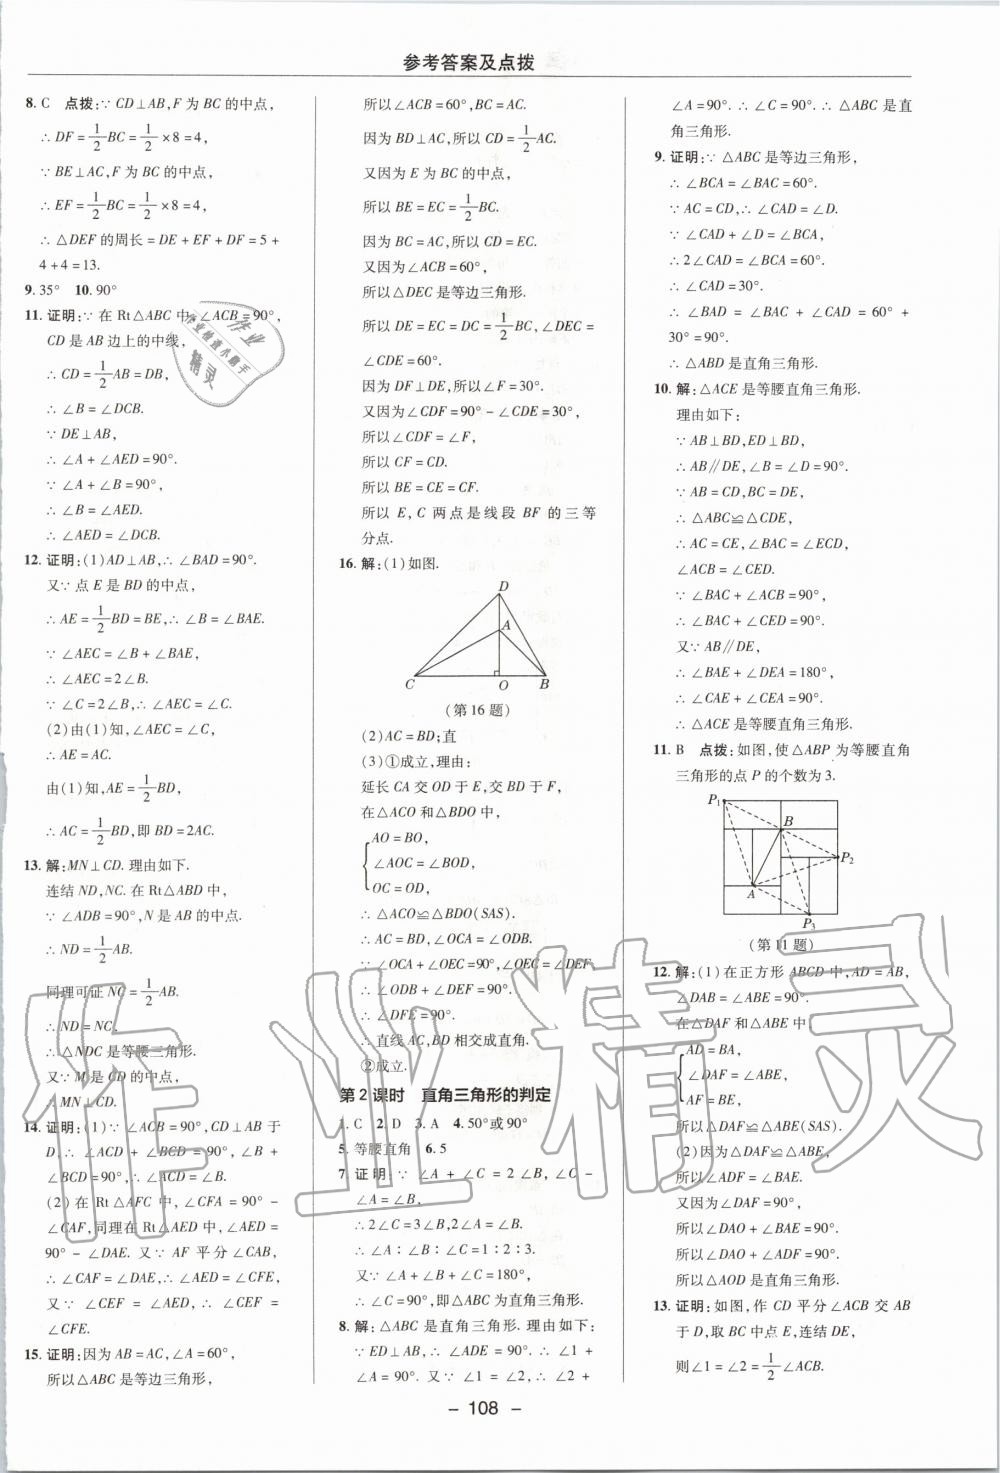 参考答案及点拨
8. C 点拨:∵ CD⊥AB,F 为 BC 的中点,
∴ DF=1/2BC=1/2×8=4,
∵ BE⊥AC,F 为 BC 的中点,
∴ EF=1/2BC=1/2×8=4,
∴ △DEF 的周长=DE+EF+DF=5+
4+4=13.
9. 35° 10. 90°
11. 证明:∵ 在 Rt△ABC 中,∠ACB=90°,
CD 是 AB 边上的中线,
∴ CD=1/2AB=DB,
∴ ∠B=∠DCB.
∵ DE⊥AB,
∴ ∠A+∠AED=90°.
∵ ∠A+∠B=90°,
∴ ∠B=∠AED.
∴ ∠AED=∠DCB.
12. 证明:(1)AD⊥AB,∴ ∠BAD=90°.
又∵ 点 E 是 BD 的中点,
∴ AE=1/2BD=BE,∴ ∠B=∠BAE.
∵ ∠AEC=∠B+∠BAE,
∴ ∠AEC=2∠B.
∵ ∠C=2∠B,∴ ∠AEC=∠C.
(2)由(1)知,∠AEC=∠C,
∴ AE=AC.
由(1)知,AE=1/2BD,
∴ AC=1/2BD,即 BD=2AC.
13. 解:MN⊥CD. 理由如下.
连结 ND,NC. 在 Rt△ABD 中,
∵ ∠ADB=90°,N 是 AB 的中点.
∴ ND=1/2AB.
同理可证 NC=1/2AB.
∴ ND=NC.
∴ △NDC 是等腰三角形.
又∵ M 是 CD 的中点,
∴ MN⊥CD.
14. 证明:(1)∵ ∠ACB=90°,CD⊥AB 于
D,∴ ∠ACD+∠BCD=90°,∠B+
∠BCD=90°,∴ ∠ACD=∠B.
(2)在 Rt△AFC 中,∠CFA=90°-
∠CAF,同理在 Rt△AED 中,∠AED=
90°-∠DAE. 又∵ AF 平分∠CAB,
∴ ∠CAF=∠DAE,∴ ∠AED=∠CFE,
又∵ ∠CEF=∠AED,∴ ∠CEF=
∠CFE.
15. 证明:因为 AB=AC,∠A=60°,
所以△ABC 是等边三角形,
所以∠ACB=60°,BC=AC.
因为 BD⊥AC,所以 CD=1/2AC.
又因为 E 为 BC 的中点,
所以 BE=EC=1/2BC.
因为 BC=AC,所以 CD=EC.
又因为∠ACB=60°,
所以△DEC 是等边三角形.
所以 DE=EC=DC=1/2BC,∠DEC=
∠CDE=60°.
因为 DF⊥DE,所以∠F=30°.
又因为∠CDF=90°-∠CDE=30°,
所以∠CDF=∠F,
所以 CF=CD.
所以 BE=CE=CF.
所以 E,C 两点是线段 BF 的三等
分点.
16. 解:(1)如图.
D
A
C O B
(第16题)
(2)AC=BD;直
(3)①成立,理由:
延长 CA 交 OD 于 E,交 BD 于 F,
在△ACO 和△BDO 中,
AO=BO,
∠AOC=∠BOD,
OC=OD,
∴ △ACO≌△BDO(SAS).
∴ AC=BD,∠OCA=∠ODB.
∵ ∠OCA+∠OEC=90°,∠OEC=∠DEF,
∴ ∠ODB+∠DEF=90°.
∴ ∠DFE=90°.
∴ 直线 AC,BD 相交成直角.
②成立.
第2课时 直角三角形的判定
1. C 2. D 3. A 4. 50°或90°
5. 等腰直角 6. 5
7. 证明:∵ ∠A+∠C=2∠B,∠C-
∠A=∠B,
∴ 2∠C=3∠B,2∠A=∠B.
∴ ∠A∶∠B∶∠C=1∶2∶3.
又∵ ∠A+∠B+∠C=180°,
∴ ∠C=90°,即△ABC 为直角三角形.
8. 解:△ABC 是直角三角形. 理由如下:
∵ ED⊥AB,∴ ∠ADE=90°.∴ ∠1+
∠A=90°. 又∵ ∠1=∠2,∴ ∠2+
∠A=90°.∴ ∠C=90°.∴ △ABC 是直
角三角形.
9. 证明:∵ △ABC 是等边三角形,
∴ ∠BCA=∠BAC=60°.
∵ AC=CD,∴ ∠CAD=∠D.
∵ ∠CAD+∠D=∠BCA,
∴ 2∠CAD=∠BCA=60°.
∴ ∠CAD=30°.
∴ ∠BAD=∠BAC+∠CAD=60°+
30°=90°.
∴ △ABD 是直角三角形.
10. 解:△ACE 是等腰直角三角形.
理由如下:
∵ AB⊥BD,ED⊥BD,
∴ AB∥DE,∠B=∠D=90°.
∵ AB=CD,BC=DE,
∴ △ABC≌△CDE,
∴ AC=CE,∠BAC=∠ECD,
∠ACB=∠CED.
∵ ∠BAC+∠ACB=90°,
∴ ∠BAC+∠CED=90°.
又∵ AB∥DE,
∴ ∠BAE+∠DEA=180°,
∴ ∠CAE+∠CEA=90°.
∴ △ACE 是等腰直角三角形.
11. B 点拨:如图,使△ABP 为等腰直角
三角形的点 P 的个数为3.
P1
B
P2
A
P3
(第11题)
12. 解:(1)在正方形 ABCD 中,AD=AB,
∠DAB=∠ABE=90°.
在△DAF 和△ABE 中
AD=BA,
∠DAF=∠ABE,
AF=BE,
所以△DAF≌△ABE(SAS).
(2)因为△DAF≌△ABE,
所以∠ADF=∠BAE.
又因为∠DAF=90°,
所以∠DAO+∠BAE=90°.
所以∠DAO+∠ADF=90°.
所以△AOD 是直角三角形.
13. 证明:如图,作 CD 平分∠ACB 交 AB
于 D,取 BC 中点 E,连结 DE,
则∠1=∠2=1/2∠ACB.
- 108 -
作业
作业检查小助手
精灵
作业精灵